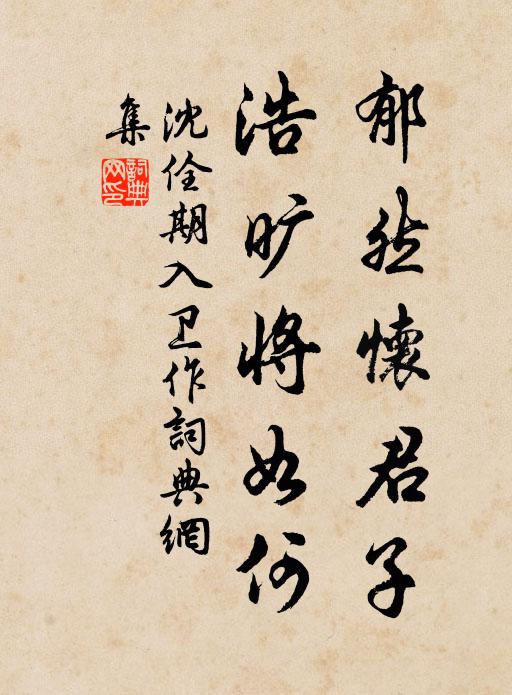 郁然懷君子
浩旷將如何
沈佺期入卫作詞典網
集
詞典網印